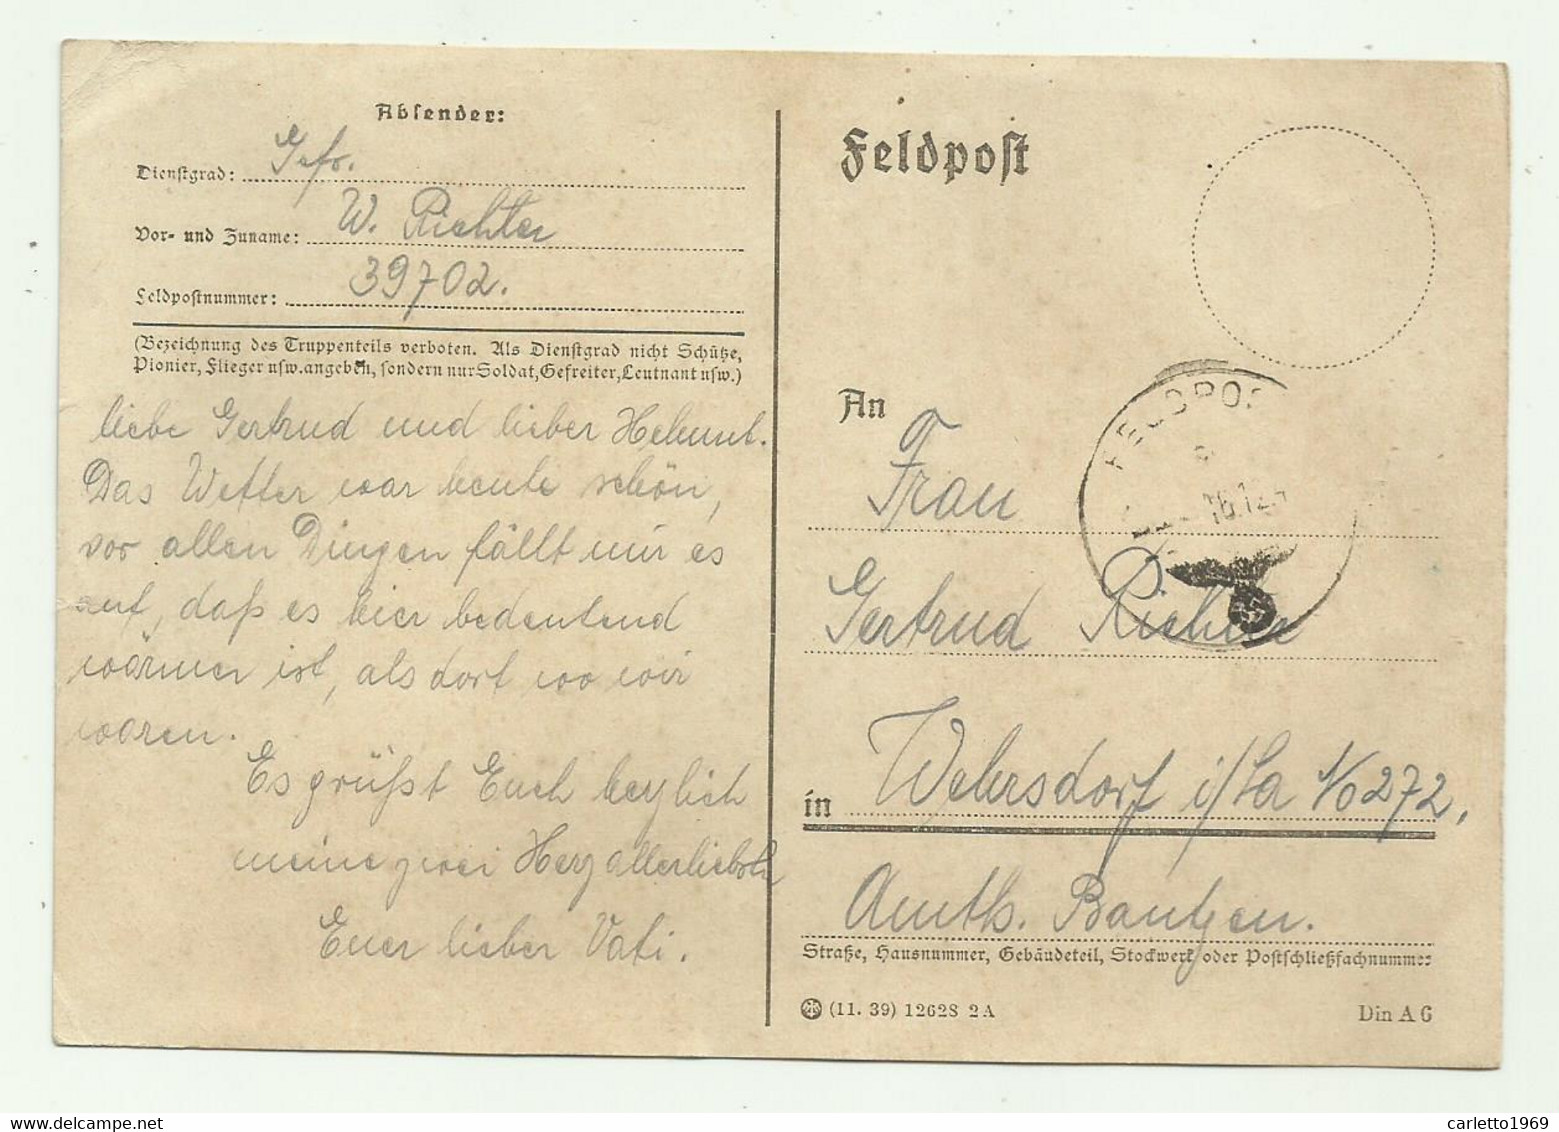 Absender:
Dienstgrad: Gefr.
Vor- und Zuname: W. Richter
Feldpostnummer: 39702.
(Bezeichnung des Truppenteils verboten. Als Dienstgrad nicht Schütze,
Pionier, Flieger usw. angeben, sondern nur Soldat, Gefreiter, Leutnant usw.)
liebe Gertrud und lieber Helmut.
Das Wetter war heute schön,
vor allen Dingen fällt mir es
auf, daß es hier bedeutend
wärmer ist, als dort wo wir
waren.
Es grüßt Euch herzlich
meine zwei Herzallerliebste
Euer lieber Vati.
Feldpost
FELDPOS
16.12.4
An
Frau
Gertrud Richter
in Wehrsdorf i/Sa No 272.
Amth. Bautzen.
Straße, Hausnummer, Gebäudeteil, Stockwerk oder Postschließfachnummer
(11. 39) 12628 2A
Din A 6
carletto1969